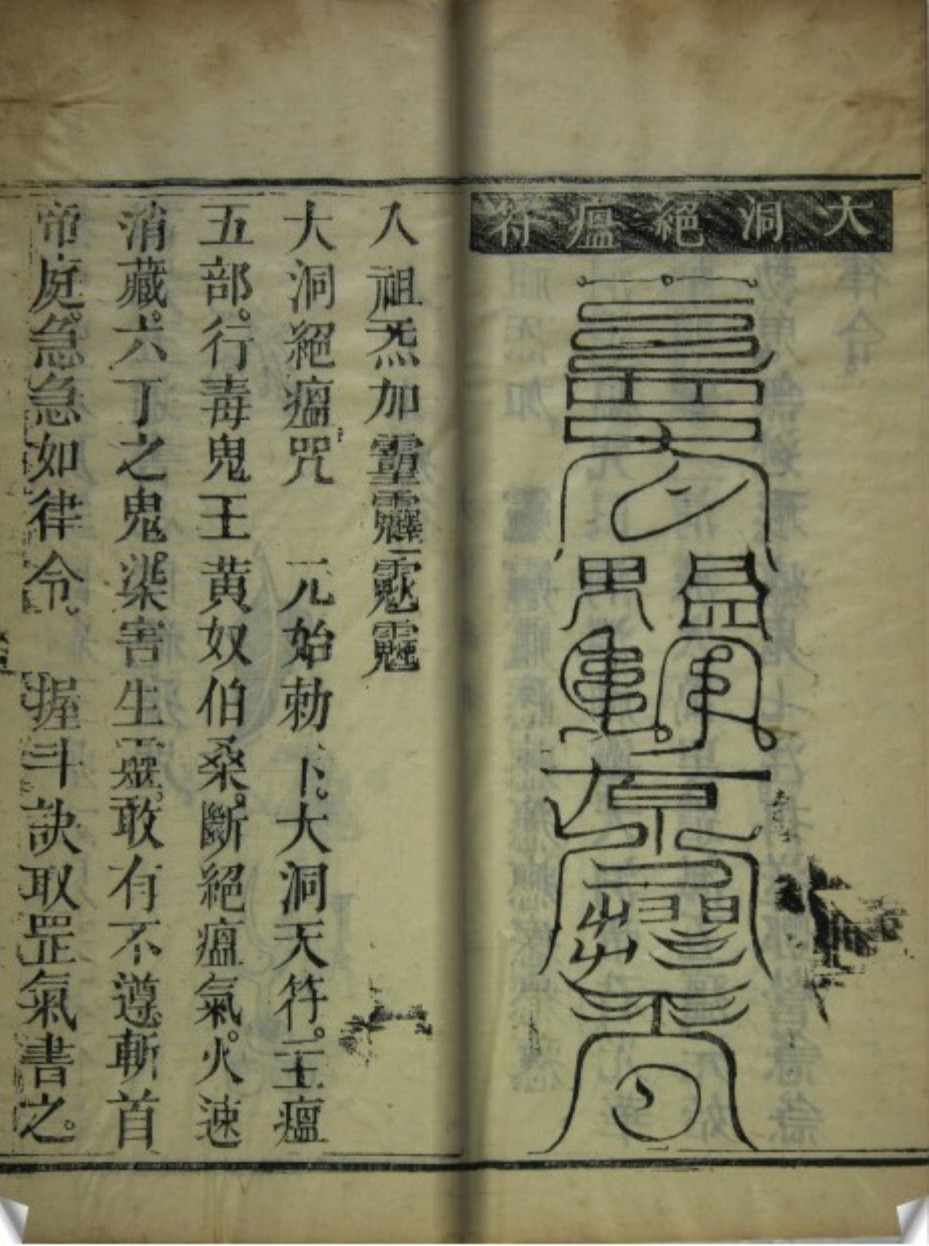 大洞絕瘟符
入 祖炁加
大洞絕瘟咒 元始勅下。大洞天符。主瘟
五部。行毒鬼王。黄奴伯桑。斷絕瘟氣。火速
消藏。六丁之鬼。渠害生靈。敢有不遵。斬首
帝庭。急急如律令。 握斗訣取罡氣書之。